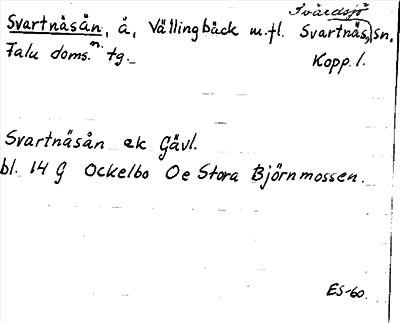 Svärdsjö
Svartnäsån, å, Vällingbäck m.fl. Svartnäs, sn.
Falu doms. m. tg. Kopp. l.
Svartnäsån ek Gävl.
bl. 14 G Ockelbo Oe Stora Björnmossen.
ES-60.